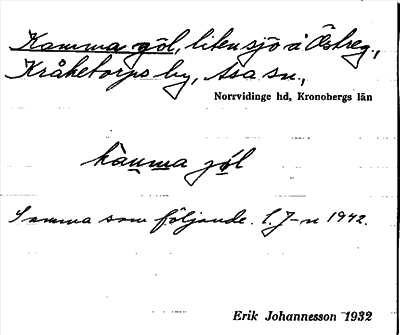 Kamma göl, liten sjö å Östreg,
Kråketorps by, Asa sn.,
Norrvidinge hd, Kronobergs län
kamma jöl
Samma som följande. E. J-n 1942.
Erik Johannesson 1932